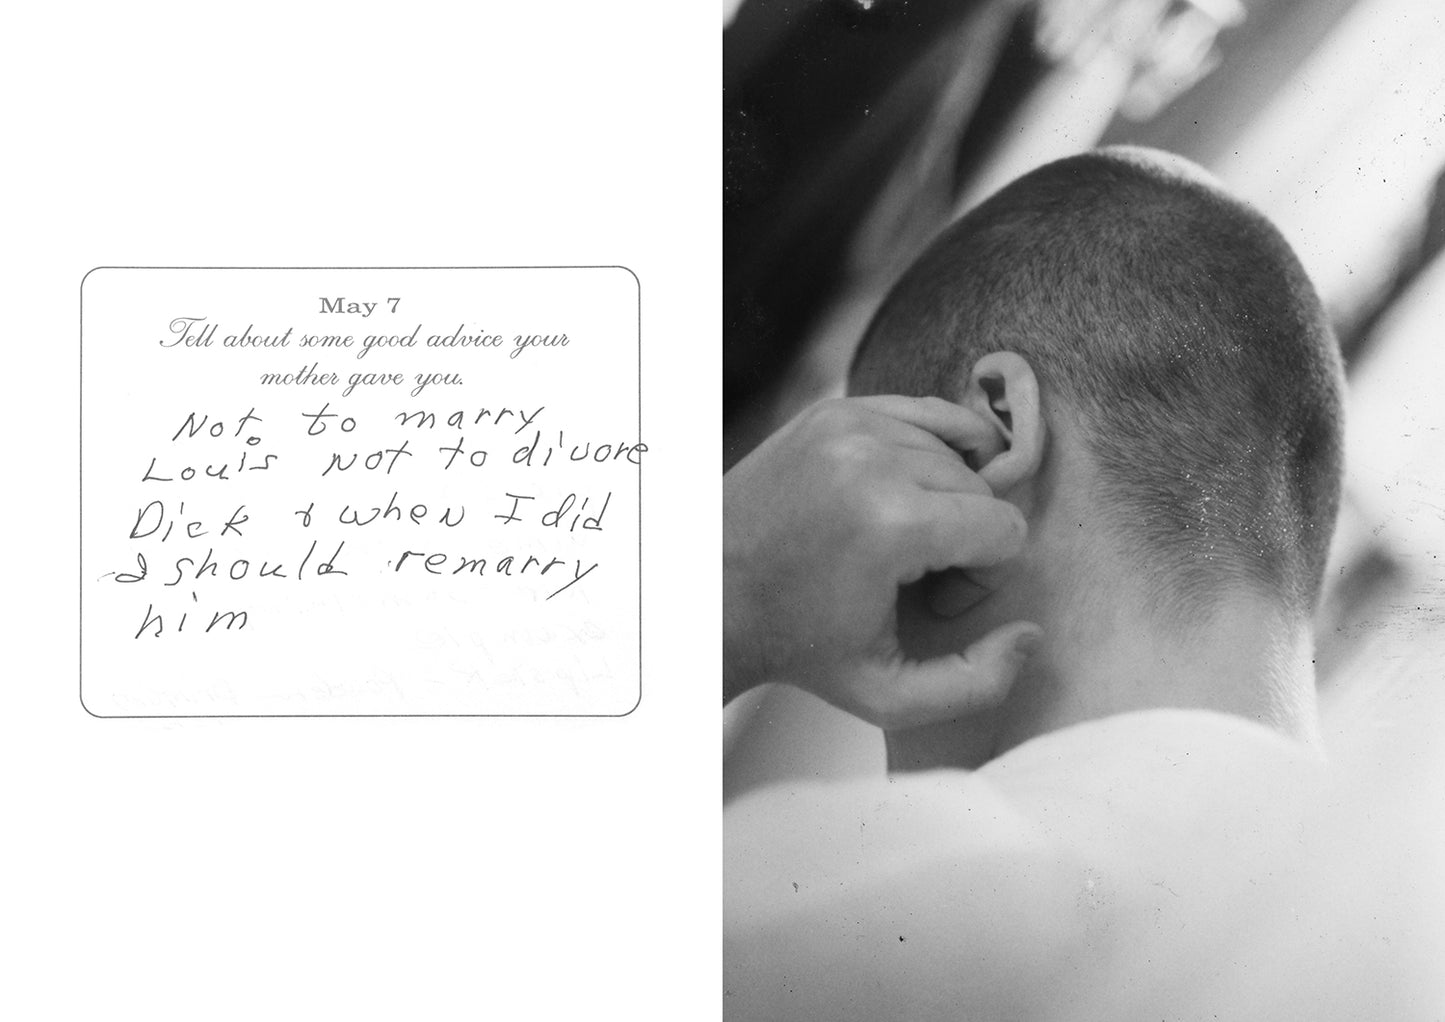 May 7
Tell about some good advice your
mother gave you.
Not to marry
Louis not to divore
Dick & when I did
I should remarry
him